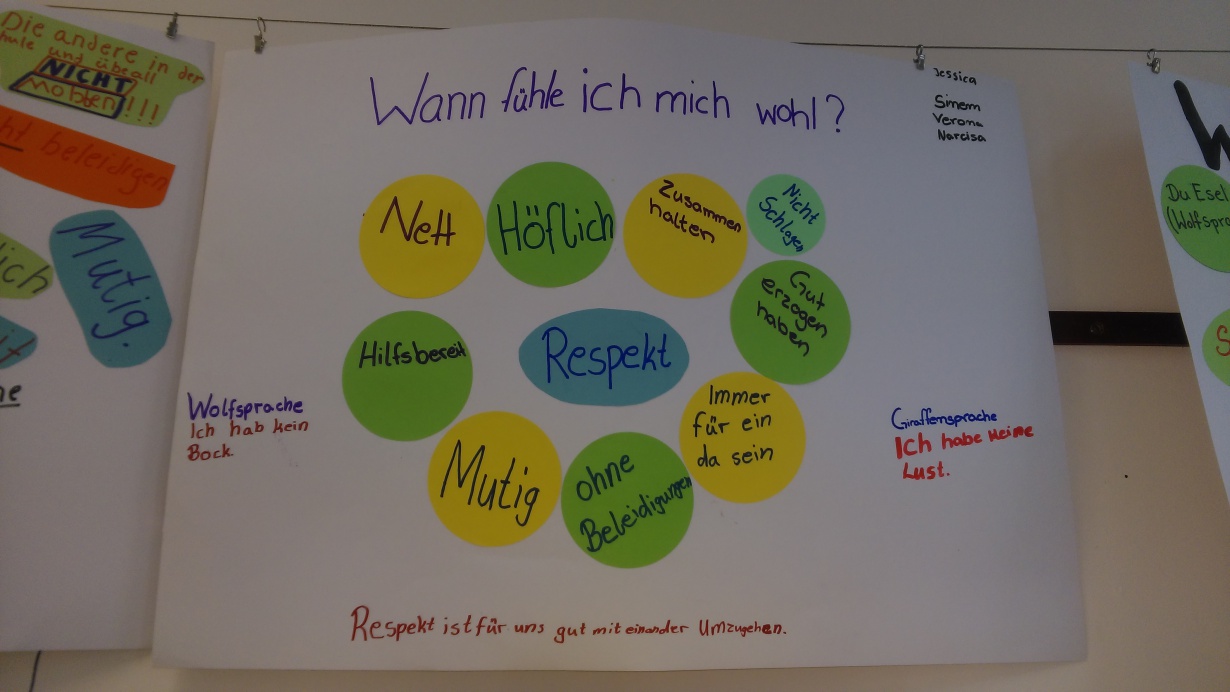 Die andere in der
hule und überall
NICHT
Mobben!!!
beleidigen
Mutig.
Wann fühle ich mich wohl?
Jessica
Sinem
Verona
Narcisa
Nett
Höflich
Zusammen
halten
Nicht
Schlagen
Gut
erzogen
haben
Hilfsbereit
Respekt
Immer
für ein
da sein
Mutig
ohne
Beleidigungen
Wolfsprache
Ich hab kein
Bock.
Giraffensprache
Ich habe keine
Lust.
Respekt ist für uns gut mit einander Umzugehen.
Du Esel
(Wolfspra